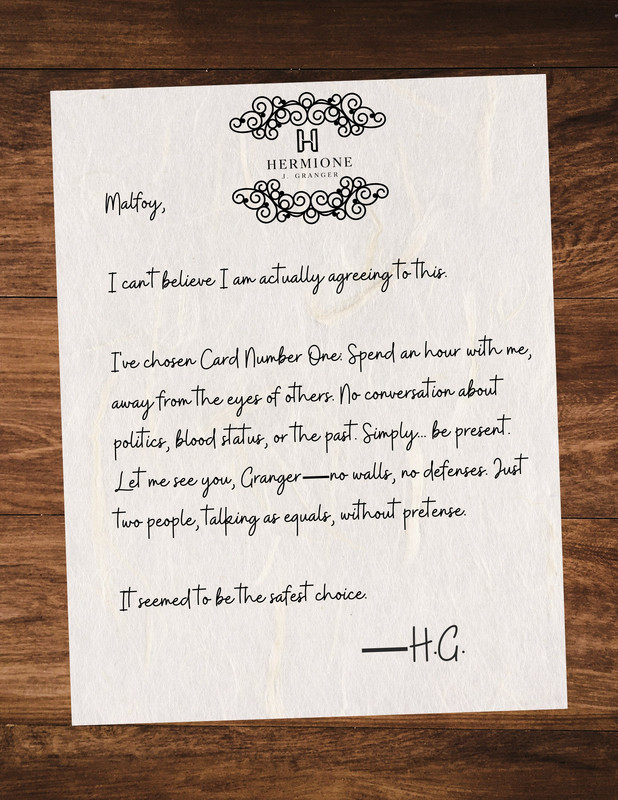 H
HERMIONE
J. GRANGER
Malfoy,
I can't believe I am actually agreeing to this.
I've chosen Card Number One: Spend an hour with me,
away from the eyes of others. No conversation about
politics, blood status, or the past. Simply... be present.
Let me see you, Granger—no walls, no defenses. Just
two people, talking as equals, without pretense.
It seemed to be the safest choice.
—H.G.